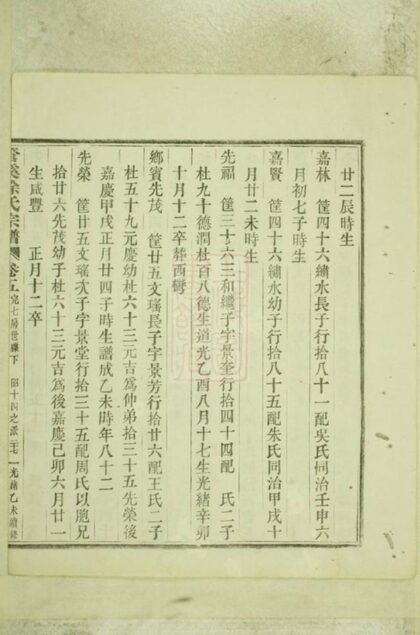 廿二辰時生
嘉林　筐四十六繡水長子行拾八十一配吳氏同治壬申六
月初七子時生
嘉賢　筐四十六繡水幼子行拾八十五配朱氏同治甲戌十
月廿二未時生
先福　筐三十六三和繼子字景奎行拾四十四配　氏二子
杜九十德潤杜百八德生道光乙酉八月十七生光緒辛卯
十月十二卒葬西彎
鄉賓先茂　筐廿五文瑤長子字景芳行拾廿六配王氏二子
杜五十九元慶幼杜六十三元吉爲仲弟拾三十五先榮後
嘉慶甲戌正月廿四子時生譜成乙未時年八十二
先榮　筐廿五文瑤次子字景堂行拾三十五配周氏以胞兄
拾廿六先茂幼子杜六十三元吉爲後嘉慶己卯六月廿一
生咸豐　正月十二卒
徐氏宗譜 卷五 七房世縣下 昭十四之派 光緒乙未續修